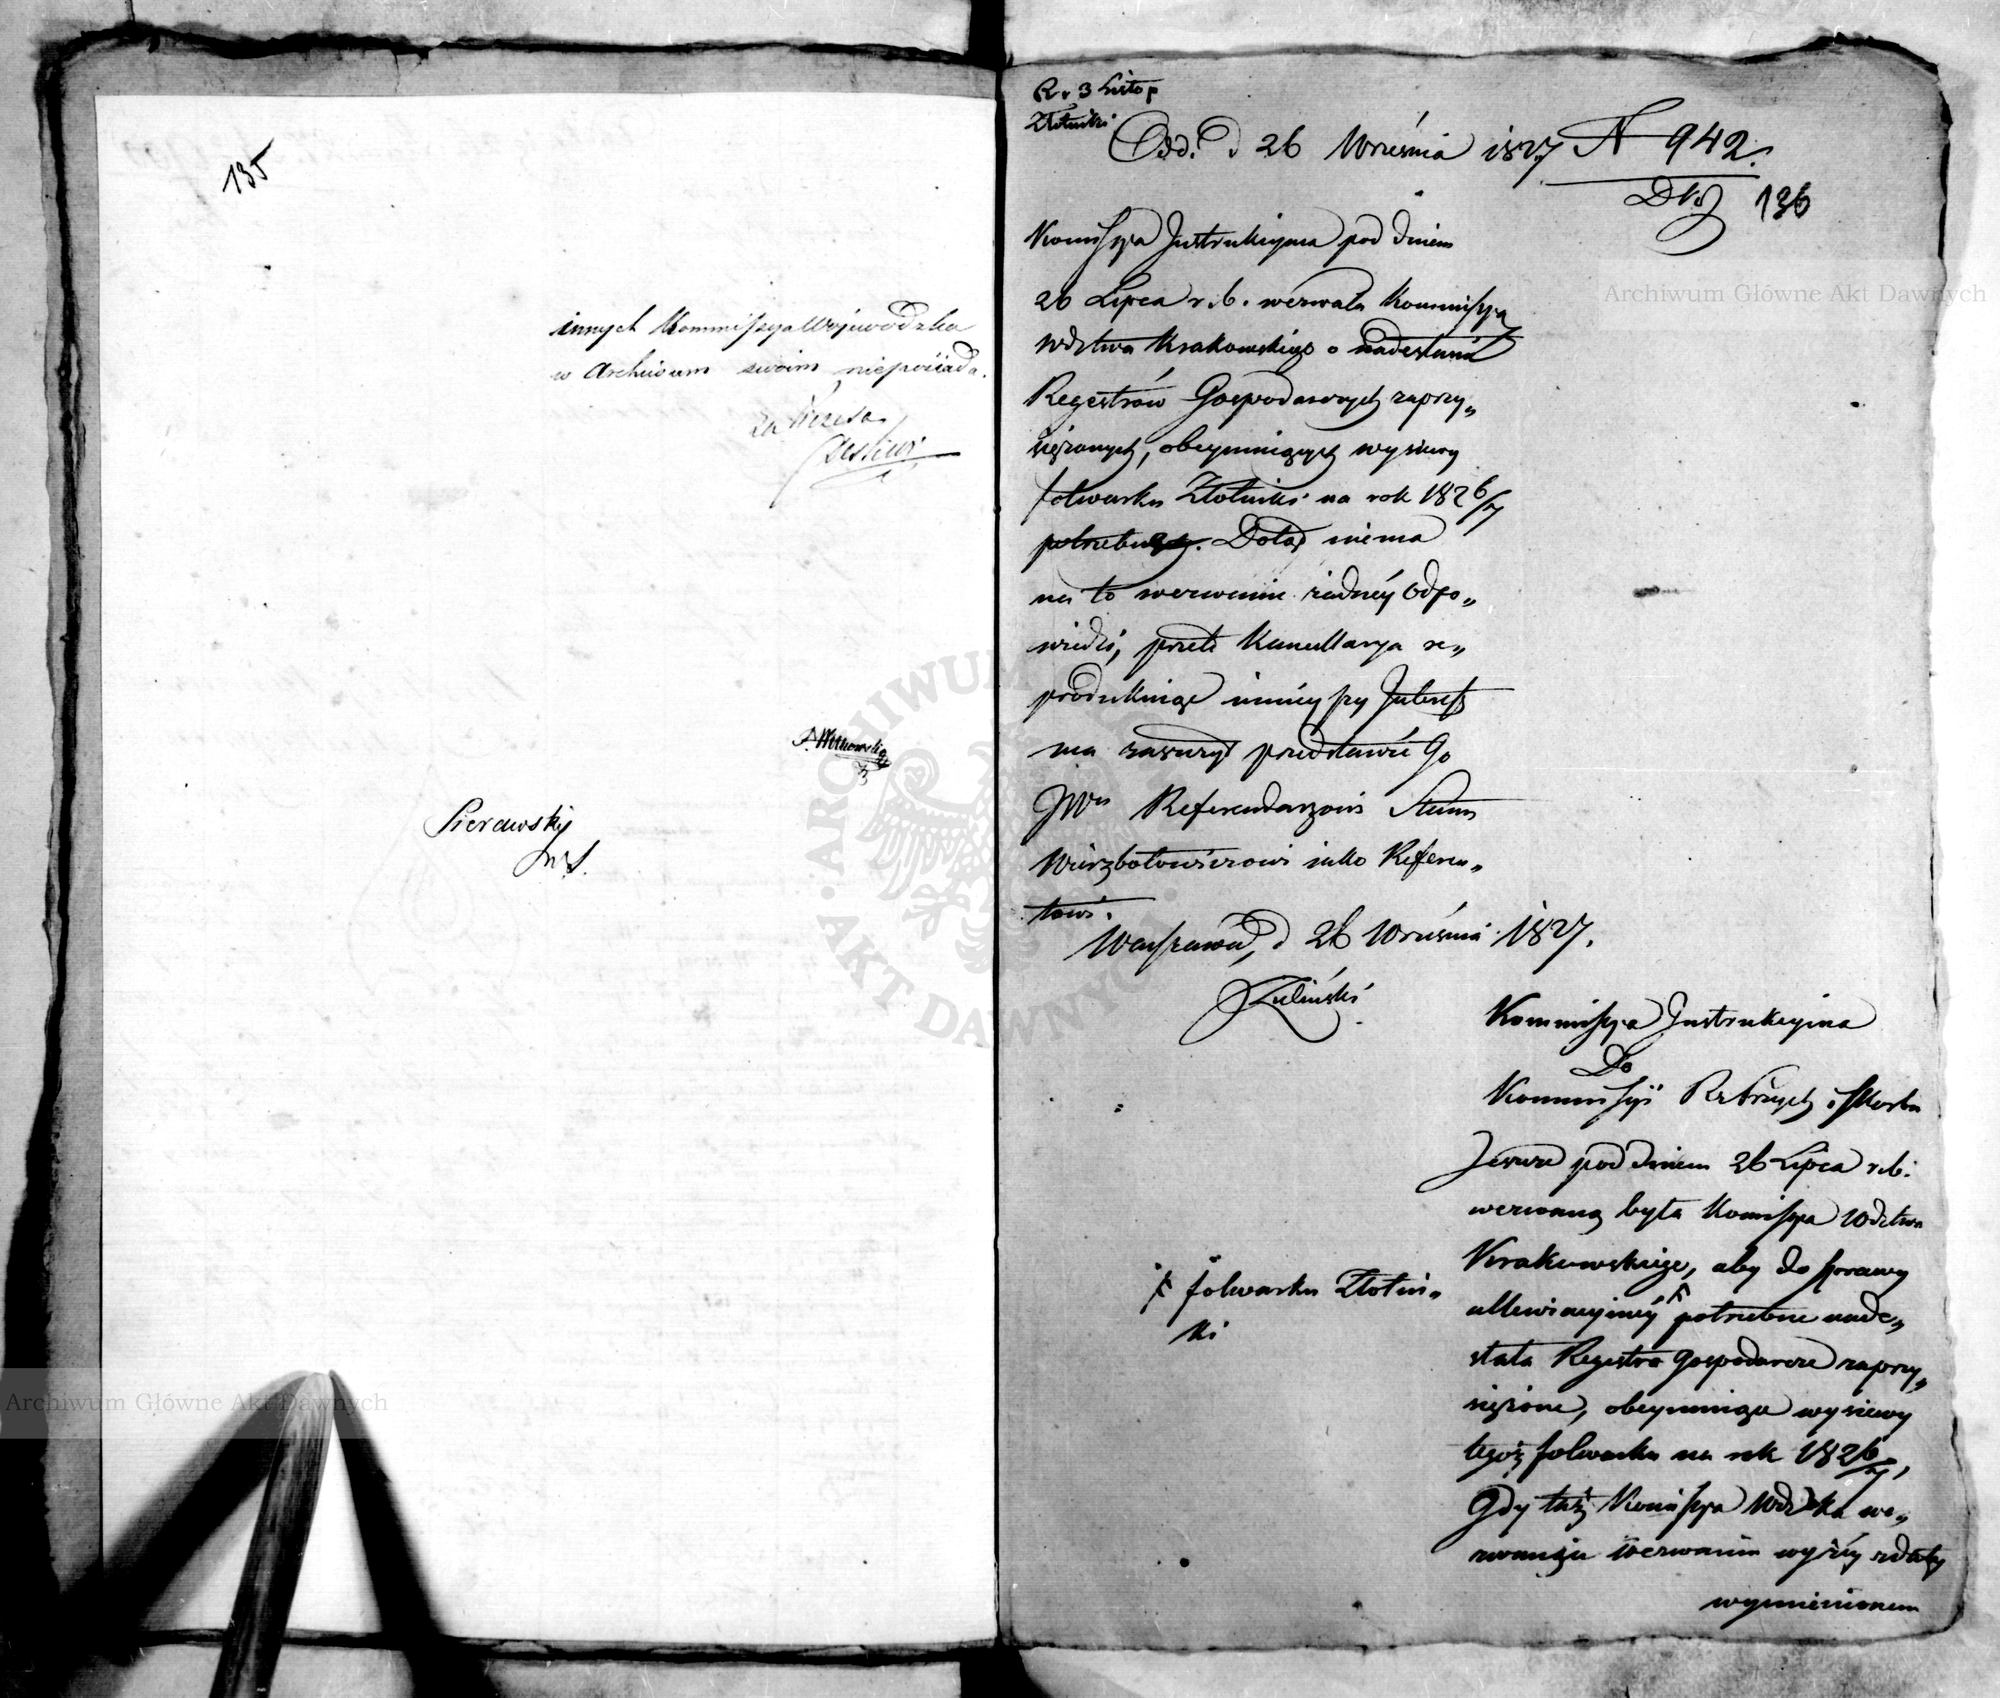 135
innych Kommissya Wojewodzka
w Archiwum swoim nieposiada.
Za Prezesa
Sierawsky
R. 3 Listop
Złotniki
Odd. d 26 Września 1827 N 942.
136
Komissya Instrukcyina pod dniem
26 Lipca r. b. wezwała Kommissyą
Wdztwa Krakowskiego o nadesłanie
Regestrów Gospodarczych zaprzy„
siężonych, obeymuiących wysiewy
folwarku Złotniki na rok 1826/7
potrzebnych. Dotąd niema
na to wezwanie żadnéy odpo„
wiedzi, przeto Kancellarya re„
produkuiąc ninieyszy Interess
ma zaszczyt przedstawić Go
JWu Referendarzowi Stanu
Wierzbołowiczowi iako Referen„
towi.
Warszawa, d 26 Września 1827.
Zieliński
Kommissya Instrukcyina
Do
Kommissyi Rz Przych i Skarbu
Jeszcze pod dniem 26 Lipca r. b.
wezwaną była Komissya Wdztwa
Krakowskiego, aby do sprawy
allewiacyinéy ƒ potrzebne nade„
słała Regestra Gospodarcze zaprzy„
siężone, obeymuiące wysiewy
tegoż folwarku na rok 1826/7,
Gdy taż Komissya Wdzka we„
zwaniu wyżéy z daty
wymienionem
ƒ folwarku Złotni„
ki
Archiwum Główne Akt Dawnych
Archiwum Główne Akt Dawnych
ARCHIWUM
AKT DAWNYCH